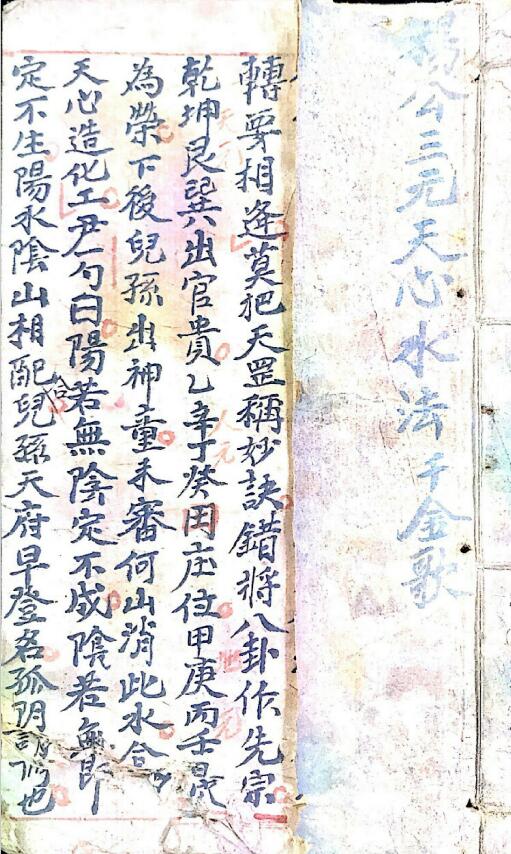 楊公三元天心水法千金歌
轉要相逢莫把天罡稱妙訣錯將八卦作先宗
乾坤艮巽出官貴乙辛丁癸田庄位甲庚丙壬最
人元
地元
為榮下後兒孫出神童未審何山消此水合
天心造化工曰陽若無陰定不成陰若無
定不生陽水陰山相配合兒孫天府早登名孤阴也